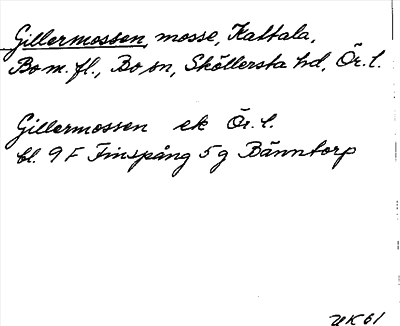 Gillermossen, mosse, Kattala,
Bo m. fl., Bo sn, Sköllersta hd, Ör. l.
Gillermossen ek Ör. l.
bl. 9 F Finspång 5 g Bänntorp
UK 61